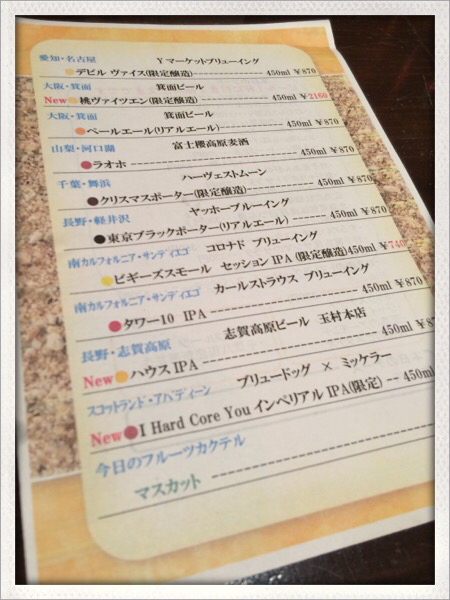 愛知・名古屋 Yマーケットブリューイング
デビル ヴァイス(限定醸造)---------- 450ml ￥870
大阪・箕面 箕面ビール
New 桃ヴァイツェン(限定醸造) ---------- 450ml ￥2160
大阪・箕面 箕面ビール
ペールエール(リアルエール)---------- 450ml ￥870
山梨・河口湖 富士桜高原麦酒
ラオホ ---------- 450ml ￥870
千葉・舞浜 ハーヴェストムーン
クリスマスポーター(限定醸造)---------- 450ml ￥870
長野・軽井沢 ヤッホーブルーイング
東京ブラックポーター(リアルエール) ------ 450ml ￥870
南カルフォルニア・サンディエゴ コロナド ブリューイング
ビギーズスモール セッション IPA (限定醸造)450ml ￥740
南カルフォルニア・サンディエゴ カールストラウス ブリューイング
タワー10 IPA ---------- 450ml ￥870
長野・志賀高原 志賀高原ビール 玉村本店
New ハウス IPA ---------- 450ml
スコットランド・アバディーン ブリュードッグ × ミッケラー
New I Hard Core You インペリアル IPA(限定) -- 450ml
今日のフルーツカクテル
マスカット ----------